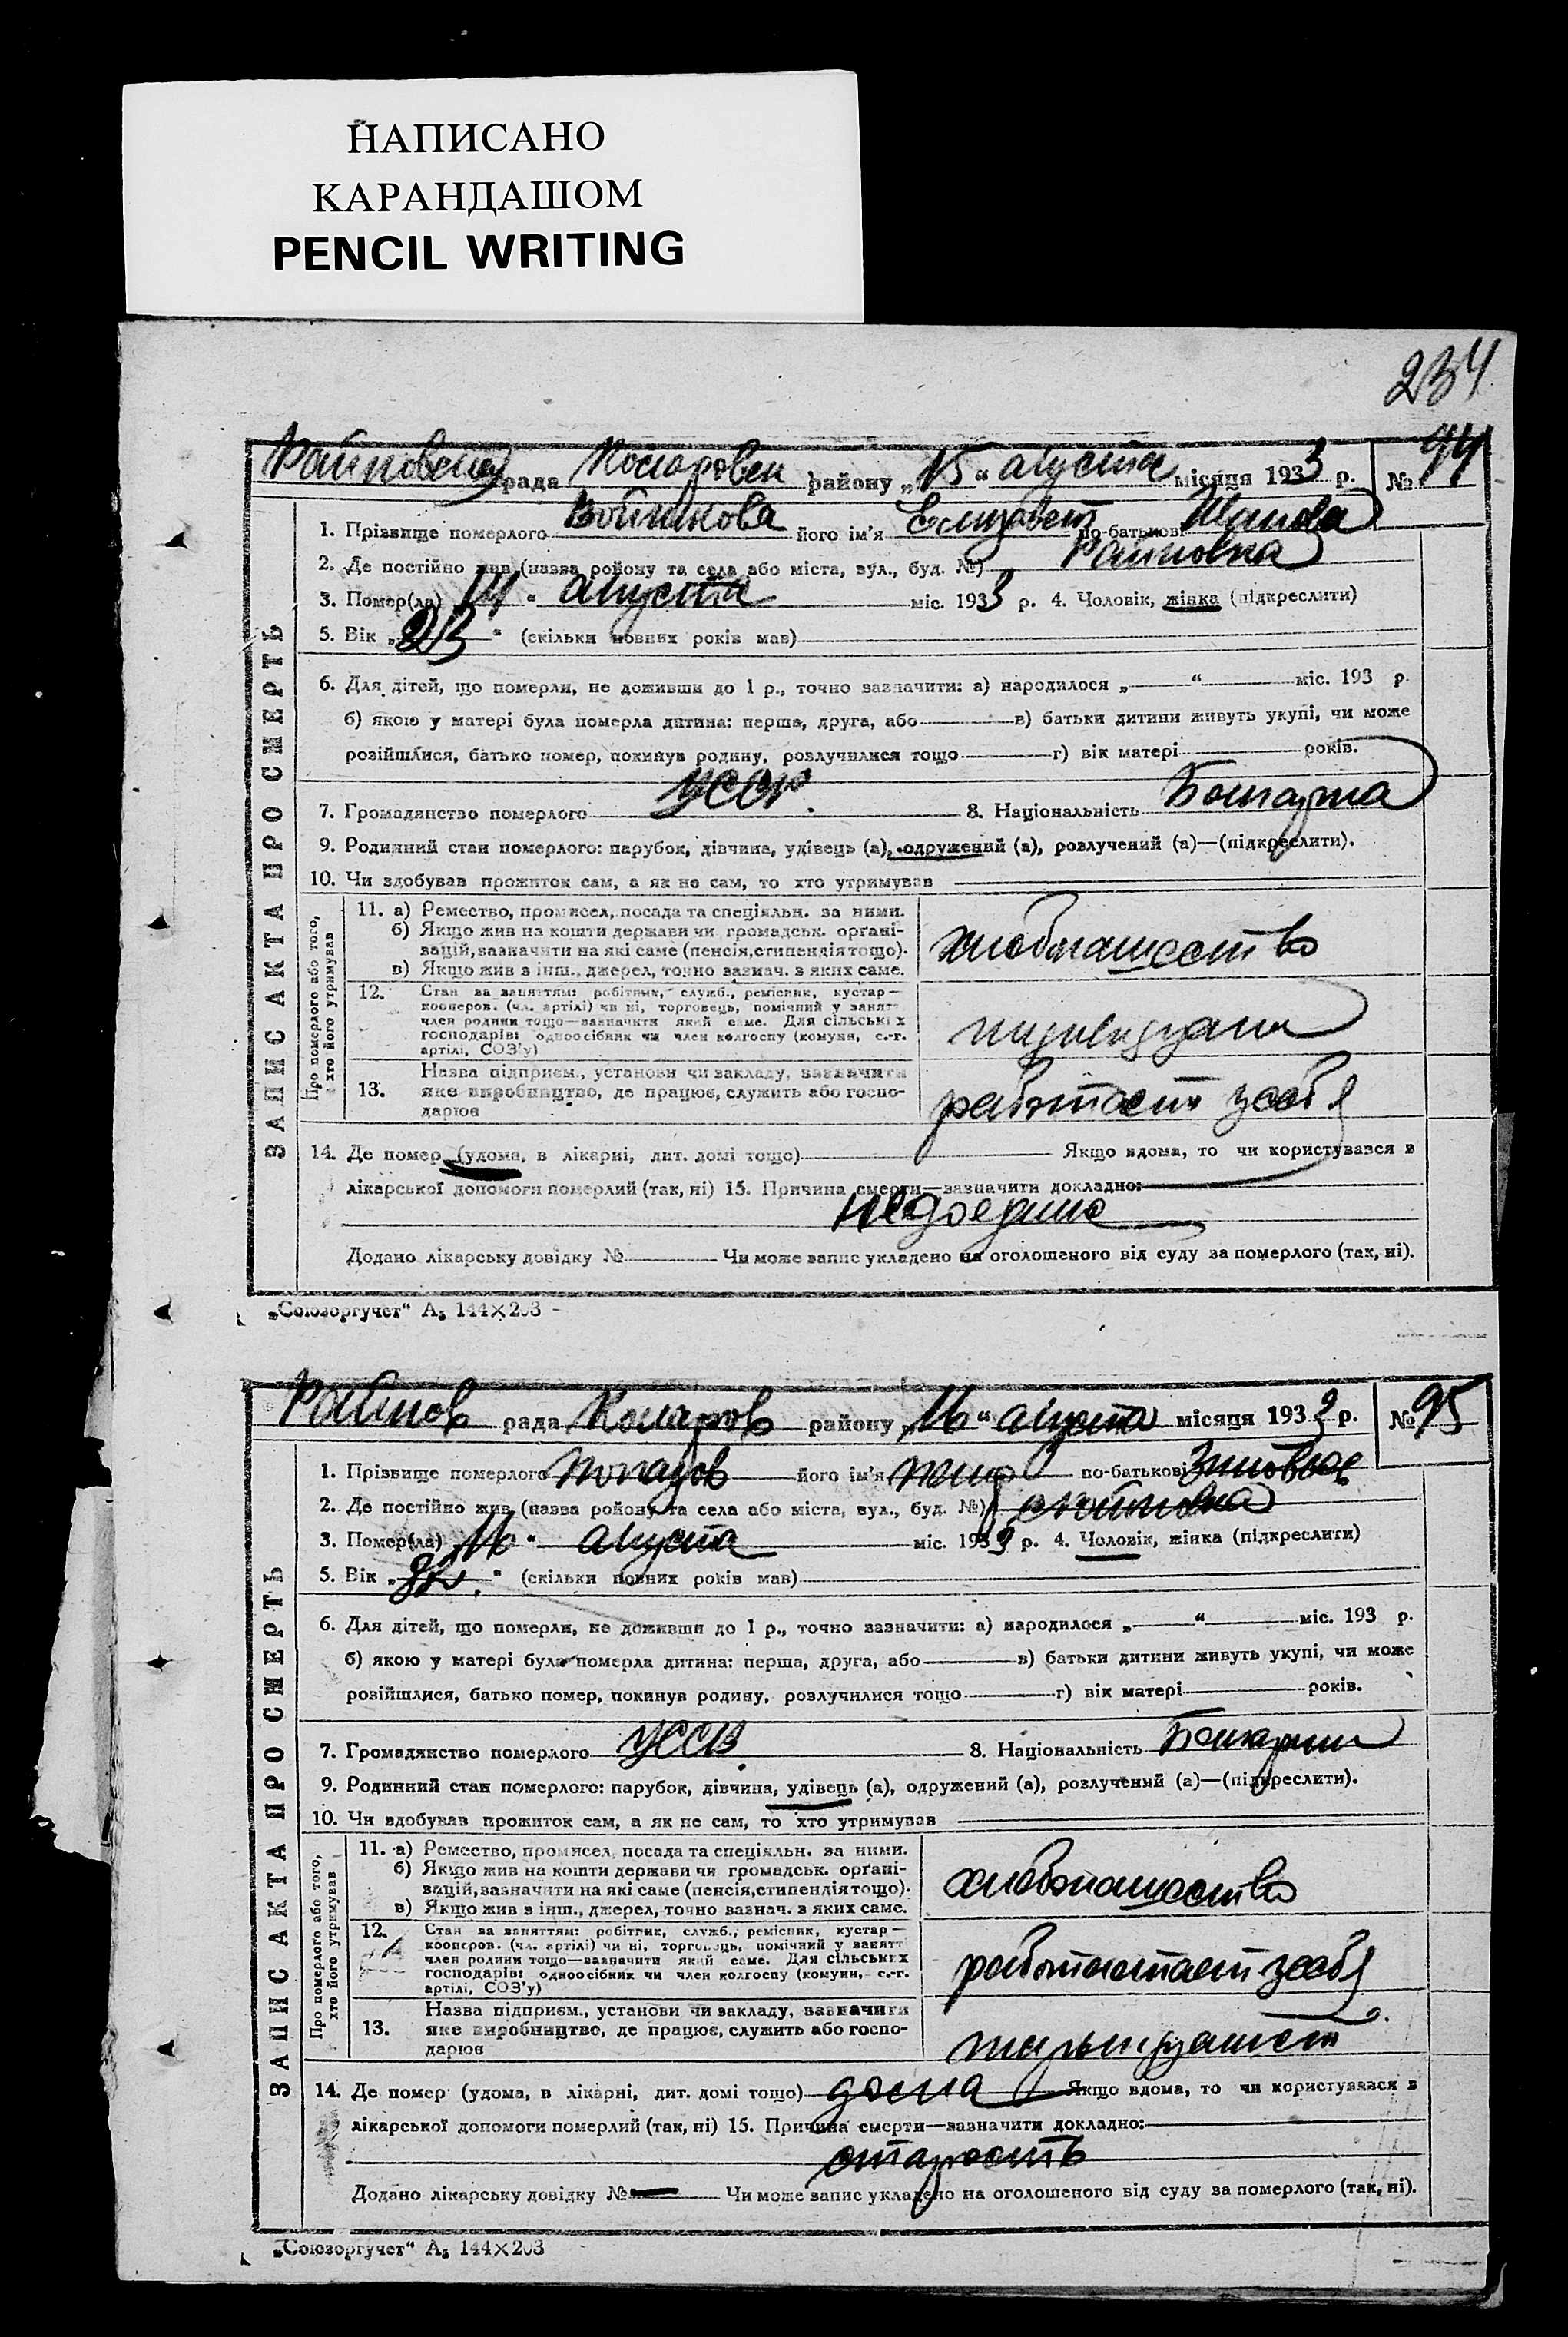 НАПИСАНО
КАРАНДАШОМ
PENCIL WRITING
234
рада района „15“ августа місяця 1933 р. № 94
ЗАПИС АКТА ПРО СМЕРТЬ
1. Прізвище померлого Войникова його ім'я Елизавет по-батькові
2. Де постійно жив (назва ройону та села або міста, вул., буд. №) Райновка
3. Помер(ла) 14 “ августа міс. 1933 р. 4. Чоловік, жінка (підкреслити)
5. Вік „23“ (скільки повних років мав)
6. Для дітей, що померли, не доживши до 1 р., точно зазначити: а) народилося „ “ міс. 193 р.
б) якою у матері була померла дитина: перша, друга, або в) батьки дитини живуть укупі, чи може
розійшлися, батько помер, покинув родину, розлучилися тощо г) вік матері років.
7. Громадянство померлого УССР. 8. Національність Болгарка
9. Родинний стан померлого: парубок, дівчина, удівець (а), одружений (а), розлучений (а)—(підкреслити).
10. Чи здобував прожиток сам, а як не сам, то хто утримував
Про померлого або того, хто його утримував
11. а) Ремество, промисел, посада та спеціяльн. за ними.
б) Якщо жив на кошти держави чи громадськ. орґані-
зацій, зазначити на які саме (пенсія, стипендія тощо).
в) Якщо жив з інш., джерел, точно зазнач. з яких саме.
хлебопашество
12. Стан за заняттям: робітник, служб., ремісник, кустар—
кооперов. (чл. артілі) чи ні, торговець, помічний у занятт
член родини тощо—зазначити який саме. Для сільських
господарів: одноосібник чи член колгоспу (комуни, с.-г.
артілі, СОЗ'у)
13. Назва підприєм., установи чи закладу, зазначити
яке виробництво, де працює, служить або госпо-
дарює
работает
14. Де помер (удома, в лікарні, дит. домі тощо) Якщо вдома, то чи користувався в
лікарської допомоги померлий (так, ні) 15. Причина смерти—зазначити докладно:
Додано лікарську довідку № Чи може запис укладено на оголошеного від суду за померлого (так, ні).
„Союзоргучет“ А₅ 144×203
Райнов рада Коларов району „16“ августа місяця 1933 р. № 95
ЗАПИС АКТА ПРО СМЕРТЬ
1. Прізвище померлого його ім'я по-батькові
2. Де постійно жив (назва ройону та села або міста, вул., буд. №)
3. Помер(ла) 16 “ августа міс. 1933 р. 4. Чоловік, жінка (підкреслити)
5. Вік „ “ (скільки повних років мав)
6. Для дітей, що померли, не доживши до 1 р., точно зазначити: а) народилося „ “ міс. 193 р.
б) якою у матері була померла дитина: перша, друга, або в) батьки дитини живуть укупі, чи може
розійшлися, батько помер, покинув родину, розлучилися тощо г) вік матері років.
7. Громадянство померлого 8. Національність Болгарин
9. Родинний стан померлого: парубок, дівчина, удівець (а), одружений (а), розлучений (а)—(підкреслити).
10. Чи здобував прожиток сам, а як не сам, то хто утримував
Про померлого або того, хто його утримував
11. а) Ремество, промисел, посада та спеціяльн. за ними.
б) Якщо жив на кошти держави чи громадськ. орґані-
зацій, зазначити на які саме (пенсія, стипендія тощо).
в) Якщо жив з інш., джерел, точно зазнач. з яких саме.
хлебопашество
12. Стан за заняттям: робітник, служб., ремісник, кустар—
кооперов. (чл. артілі) чи ні, торговець, помічний у занятт
член родини тощо—зазначити який саме. Для сільських
господарів: одноосібник чи член колгоспу (комуни, с.-г.
артілі, СОЗ'у)
13. Назва підприєм., установи чи закладу, зазначити
яке виробництво, де працює, служить або госпо-
дарює
14. Де помер (удома, в лікарні, дит. домі тощо) дома Якщо вдома, то чи користувався в
лікарської допомоги померлий (так, ні) 15. Причина смерти—зазначити докладно:
старость
Додано лікарську довідку № Чи може запис укладено на оголошеного від суду за померлого (так, ні).
„Союзоргучет“ А₅ 144×203